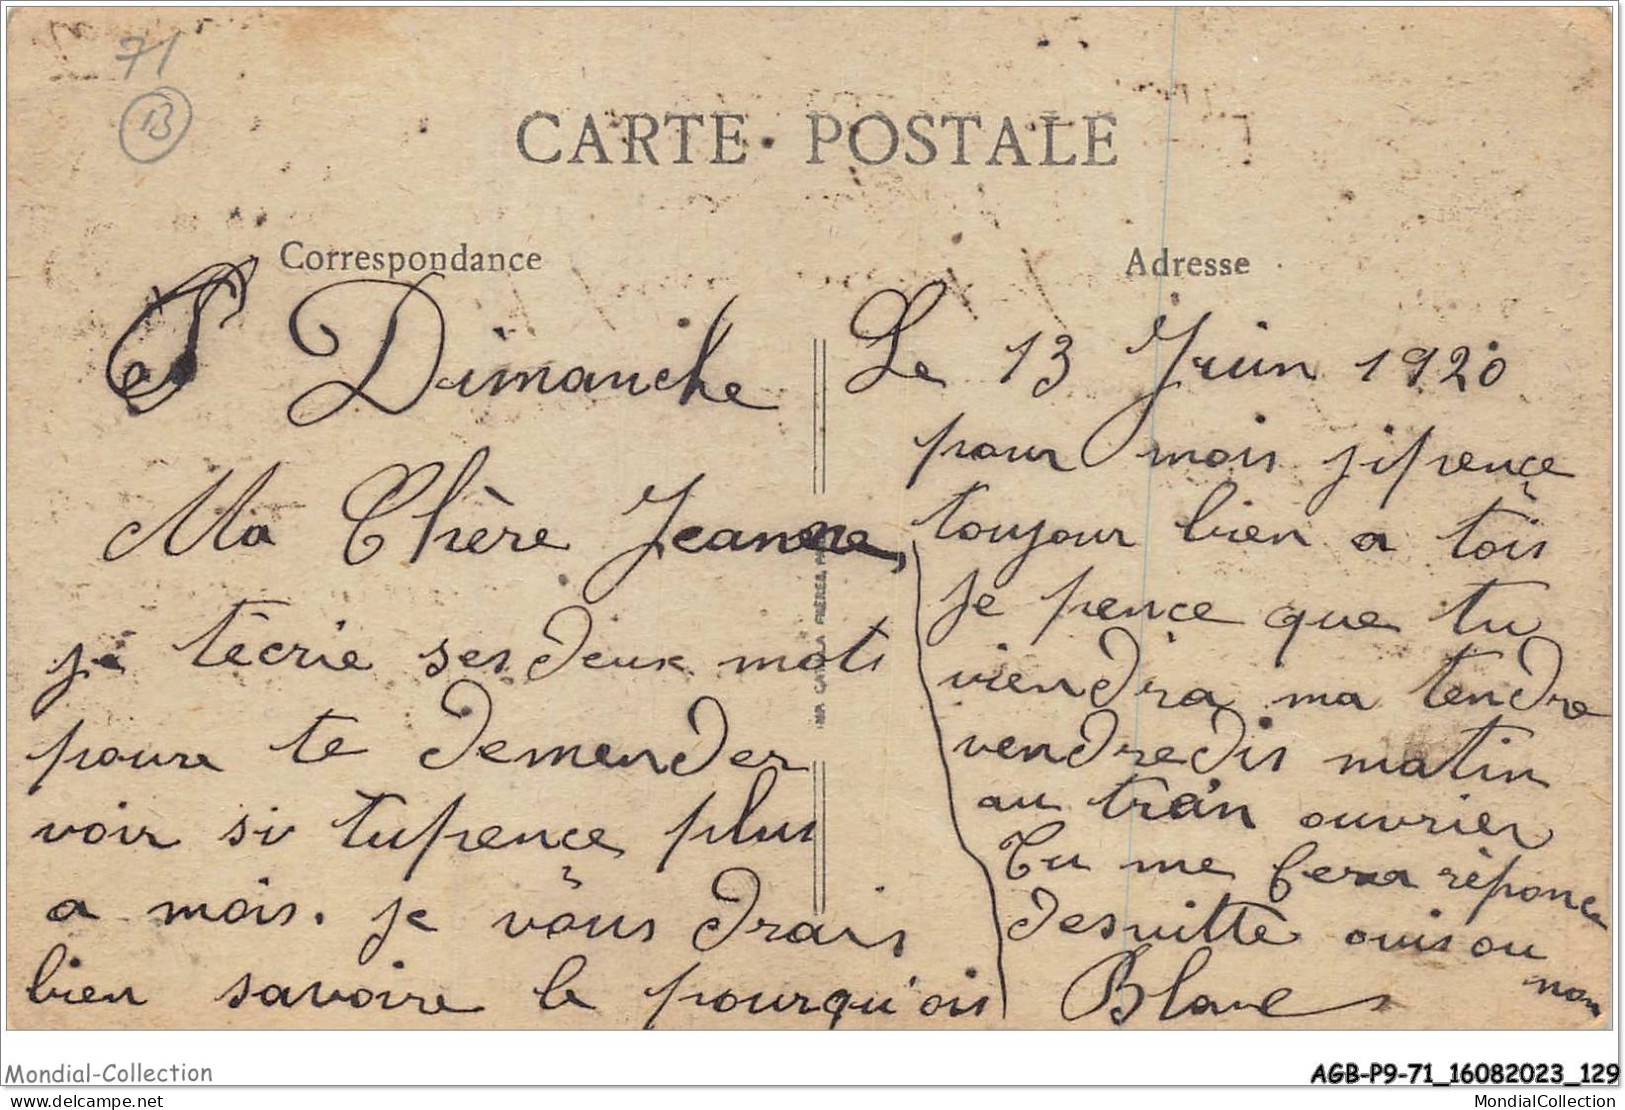 71
13
CARTE POSTALE
Correspondance
Dimanche
Ma Chère Jeanne,
je técrie ses deux mots
poure te demender
voir si tupence plus
a mois. je vous drais
bien savoire le pourqu'ois
IMP. CATALA FRÈRES,
Adresse
Le 13 Juin 1920
pour mois jipence
toujour bien a tois
je pence que tu
viendra ma tendre
vendredis matin
au train ouvrier
Tu me fera réponce
desuitte ouis ou
non
Mondial-Collection
AGB-P9-71_16082023_129
delcampe.net
MondialCollection